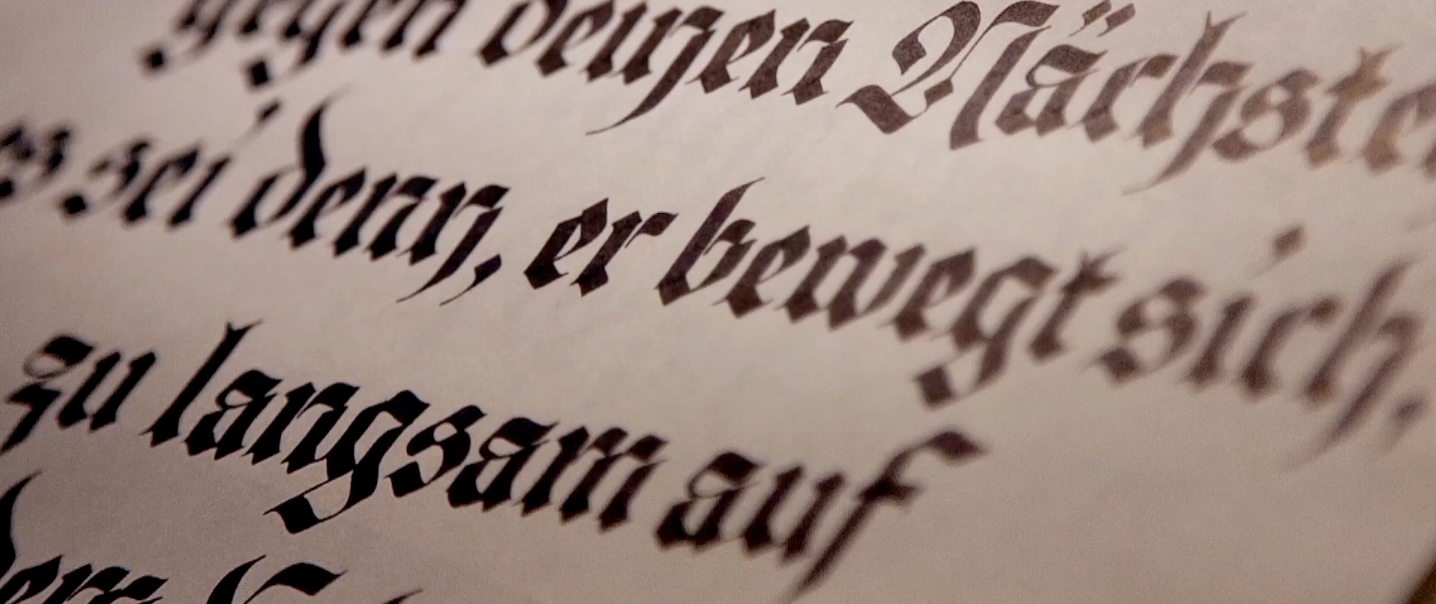 gegen deinen Nächsten
es sei denn, er bewegt sich,
zu langsam auf
dem